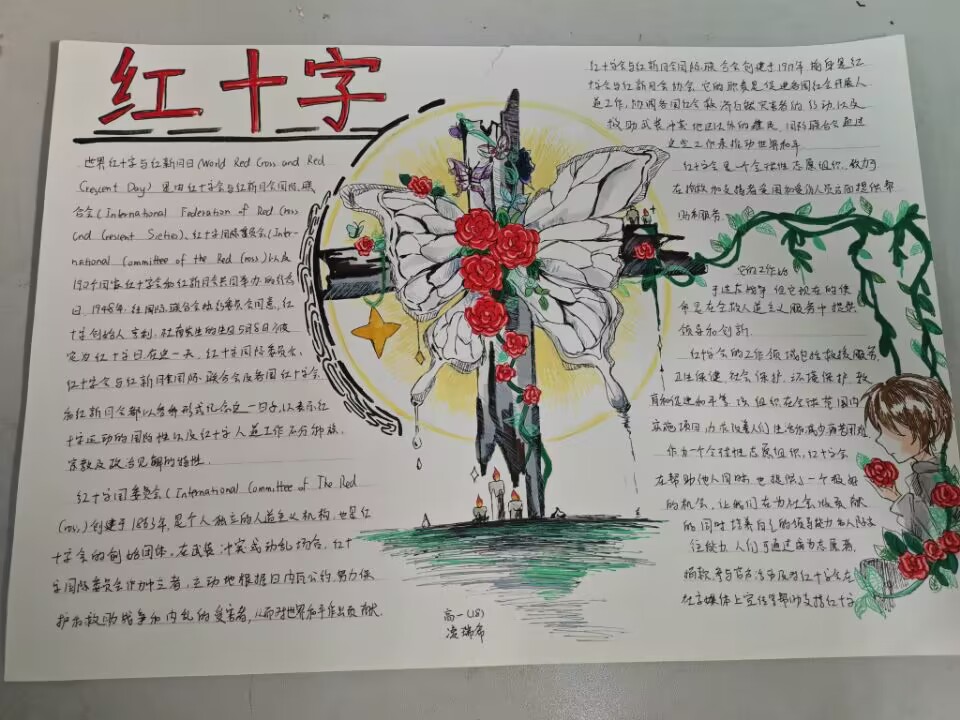 红十字
世界红十字与红新月日(World Red Cross and Red
Crescent Day) 是由红十字会与红新月会国际联
合会(International Federation of Red Cross
and Cresent Sieties)、红十字国际委员会(Inter-
national Committee of the Red Cross)以及
192个国家红十字会和红新月会共同举办的纪念
日。1948年,经国际联合会执行委员会同意,红
十字创始人亨利·杜南先生的生日5月8日被
定为红十字日。在这一天,红十字国际委员会、
红十字会与红新月会国际联合会及各国红十字会
和红新月会都以各种形式纪念这一日子,以表示红
十字运动的国际性以及红十字人道工作不分种族、
宗教及政治见解的特性。
红十字国委员会(International Committee of The Red
Cross,)创建于1863年,是个人独立的人道主义机构,也是红
十字会的创始团体。在武装冲突或动乱场合,红十
字国际委员会作为中立者,主动地根据日内瓦公约,努力保
护和救助战争和内乱的受害者,从而对世界和平作出贡献。
红十字会与红新月会国际联合会创建于1919年,
字会与红新月会协会。它的职责是促进各国红会开展人
道工作,协调各国红会救济自然灾害者的行动,以及
救助武装冲突地区以外的难民。国际联合会通过
这些工作来推动世界和平
红十字会是一个全球性志愿组织,致力于
在拯救和支持者受困和受伤人员方面提供帮
助和服务
它的工作始
于这在战争,但它现在的使
命是在全球人道主义服务中提供
领导和创新。
红十字会的工作领域包括救援服务,
卫生保健,社会保护,环境保护,教
育和促进和平等。该组织在全球范围内
实施项目,力求改善人们生活和减少痛苦困难
作为一个全球性志愿组织,红十字会
在帮助他人同时,也提供了一个极好
的机会,让我们在为社会做贡献
的同时培养自己的领导能力和人际交
往能力。人们可通过成为志愿者,
捐款,参与官方活动及对红十字会在
社交媒体上宣传等帮助支持红十字
高一(18)
凌瑞希